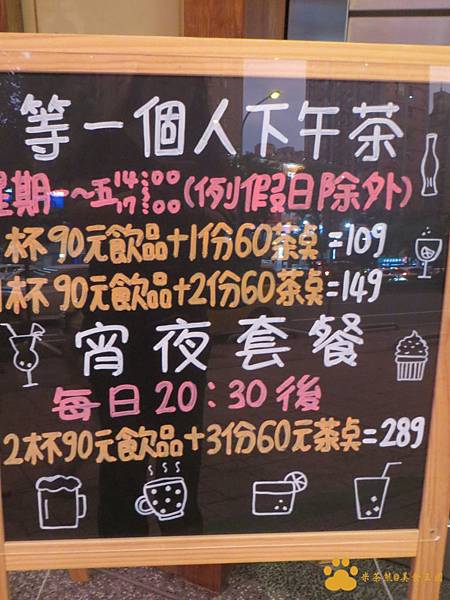 等一個人下午茶
星期一~五14:00 17:00(例假日除外)
1杯90元飲品+1份60茶桌=109
1杯90元飲品+2份60茶桌=149
宵夜套餐
每日20:30後
2杯90元飲品+3份60元茶桌=289
米茶熊@美食王國